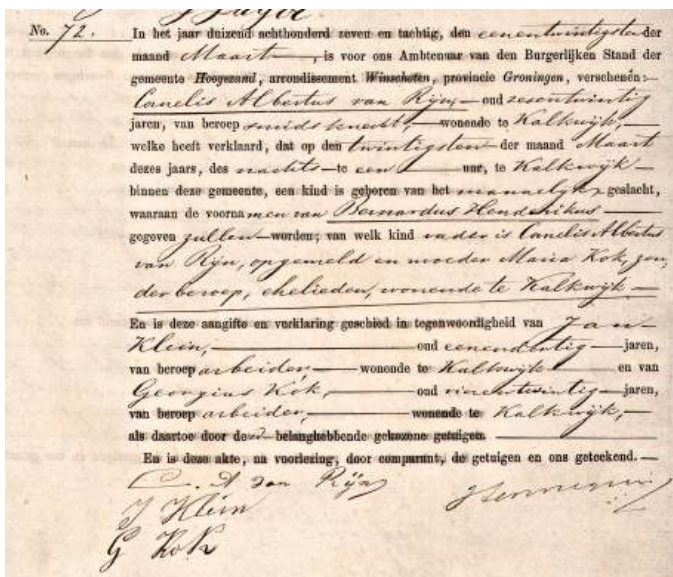 No. 72. In het jaar duizend achthonderd zeven en tachtig, den eenentwintigsten der
maand Maart, is voor ons Ambtenaar van den Burgerlijken Stand der
gemeente Hoogezand, arrondissement Winschoten, provincie Groningen, verschenen:
Canelis Albertus van Rijn, oud zesentwintig
jaren, van beroep smidsknecht, wonende te Kalkwijk,
welke heeft verklaard, dat op den twintigsten der maand Maart
dezes jaars, des nachts te een uur, te Kalkwijk
binnen deze gemeente, een kind is geboren van het mannelijk geslacht,
waaraan de voornamen van Bernardus Hendrikus
gegeven zullen worden; van welk kind vader is Canelis Albertus
van Rijn, opgemeld en moeder Maria Kok, zon,,
der beroep, ehelieden, wonende te Kalkwijk
En is deze aangifte en verklaring geschied in tegenwoordigheid van Jan
Klein, oud eenendertig jaren,
van beroep arbeider, wonende te Kalkwijk en van
Georgius Kok, oud vierentwintig jaren,
van beroep arbeider, wonende te Kalkwijk,
als daartoe door de belanghebbende gekozene getuigen.
En is deze akte, na voorlezing, door comparant, de getuigen en ons geteekend.
C. A van Rijn
J Klein
G Kok